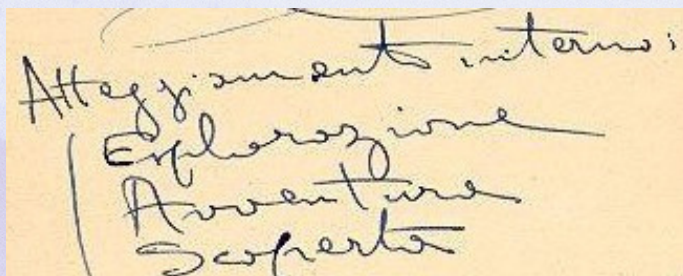 Atteggiamento interno:
Esplorazione
Avventura
Scoperta